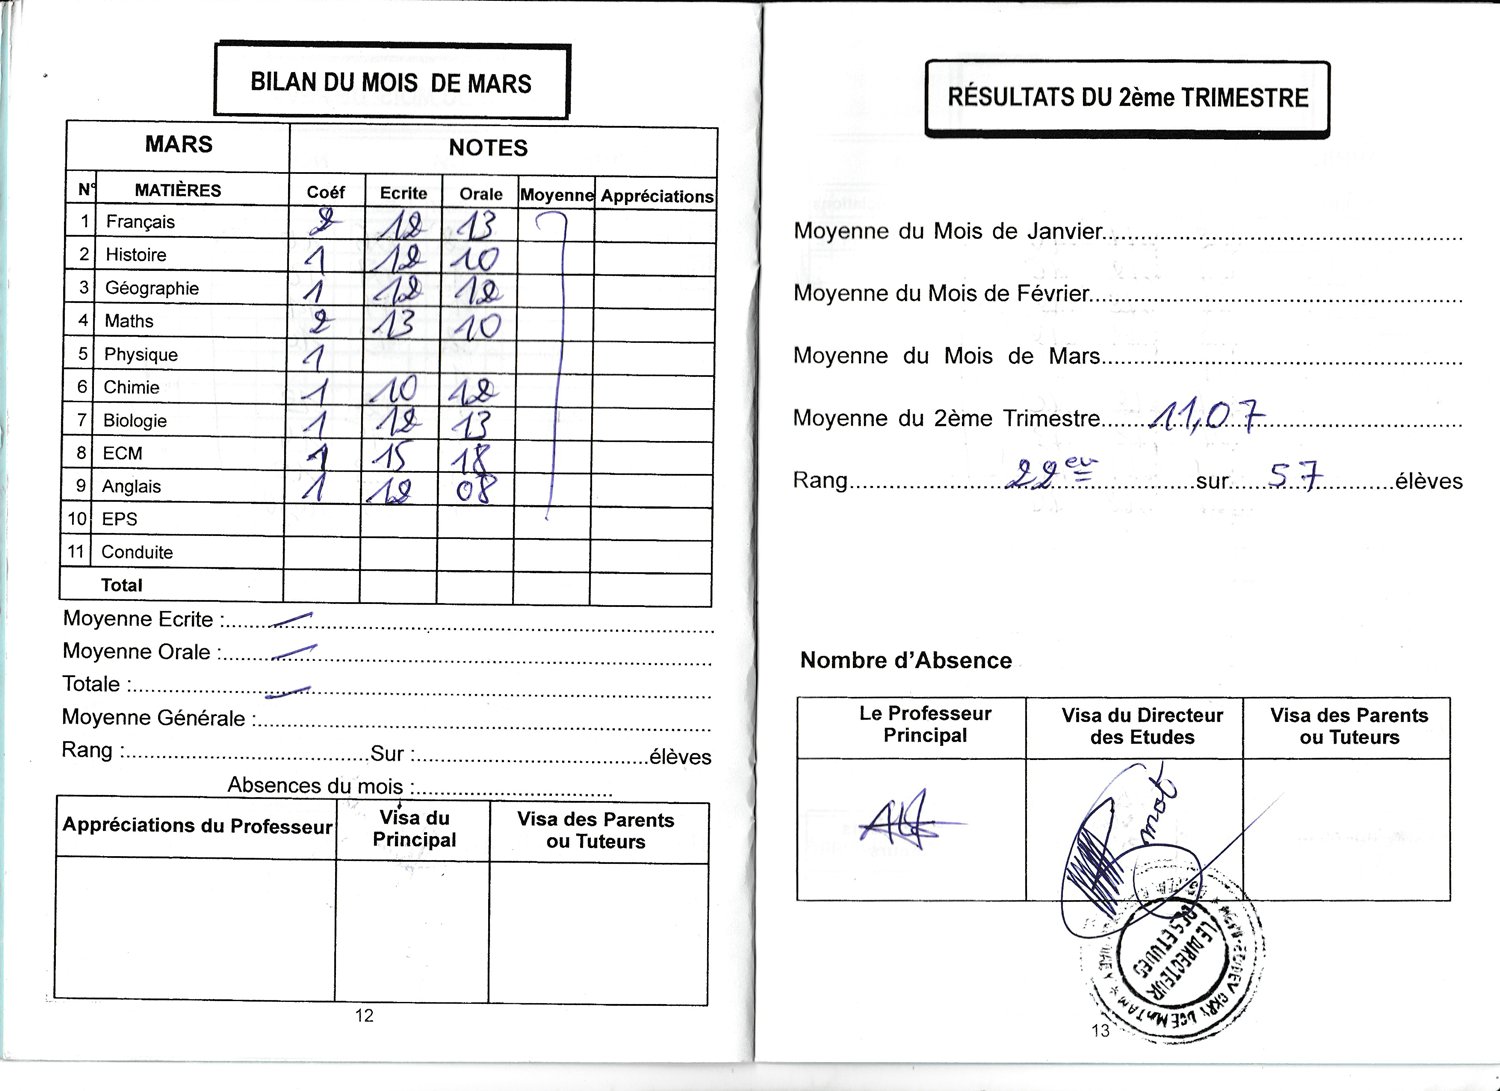 BILAN DU MOIS DE MARS
MARS NOTES
N° MATIÈRES Coéf Ecrite Orale Moyenne Appréciations
1 Français 2 12 13
2 Histoire 1 12 10
3 Géographie 1 12 12
4 Maths 2 13 10
5 Physique 1
6 Chimie 1 10 12
7 Biologie 1 12 13
8 ECM 1 15 18
9 Anglais 1 12 08
10 EPS
11 Conduite
Total
Moyenne Ecrite :
Moyenne Orale :
Totale :
Moyenne Générale :
Rang : Sur : élèves
Absences du mois :
Appréciations du Professeur
Visa du Principal
Visa des Parents ou Tuteurs
12
RÉSULTATS DU 2ème TRIMESTRE
Moyenne du Mois de Janvier
Moyenne du Mois de Février
Moyenne du Mois de Mars
Moyenne du 2ème Trimestre 11,07
Rang 22 sur 57 élèves
Nombre d'Absence
Le Professeur Principal
Visa du Directeur des Etudes
Visa des Parents ou Tuteurs
LE DIRECTEUR
DES ETUDES
MATAM
13